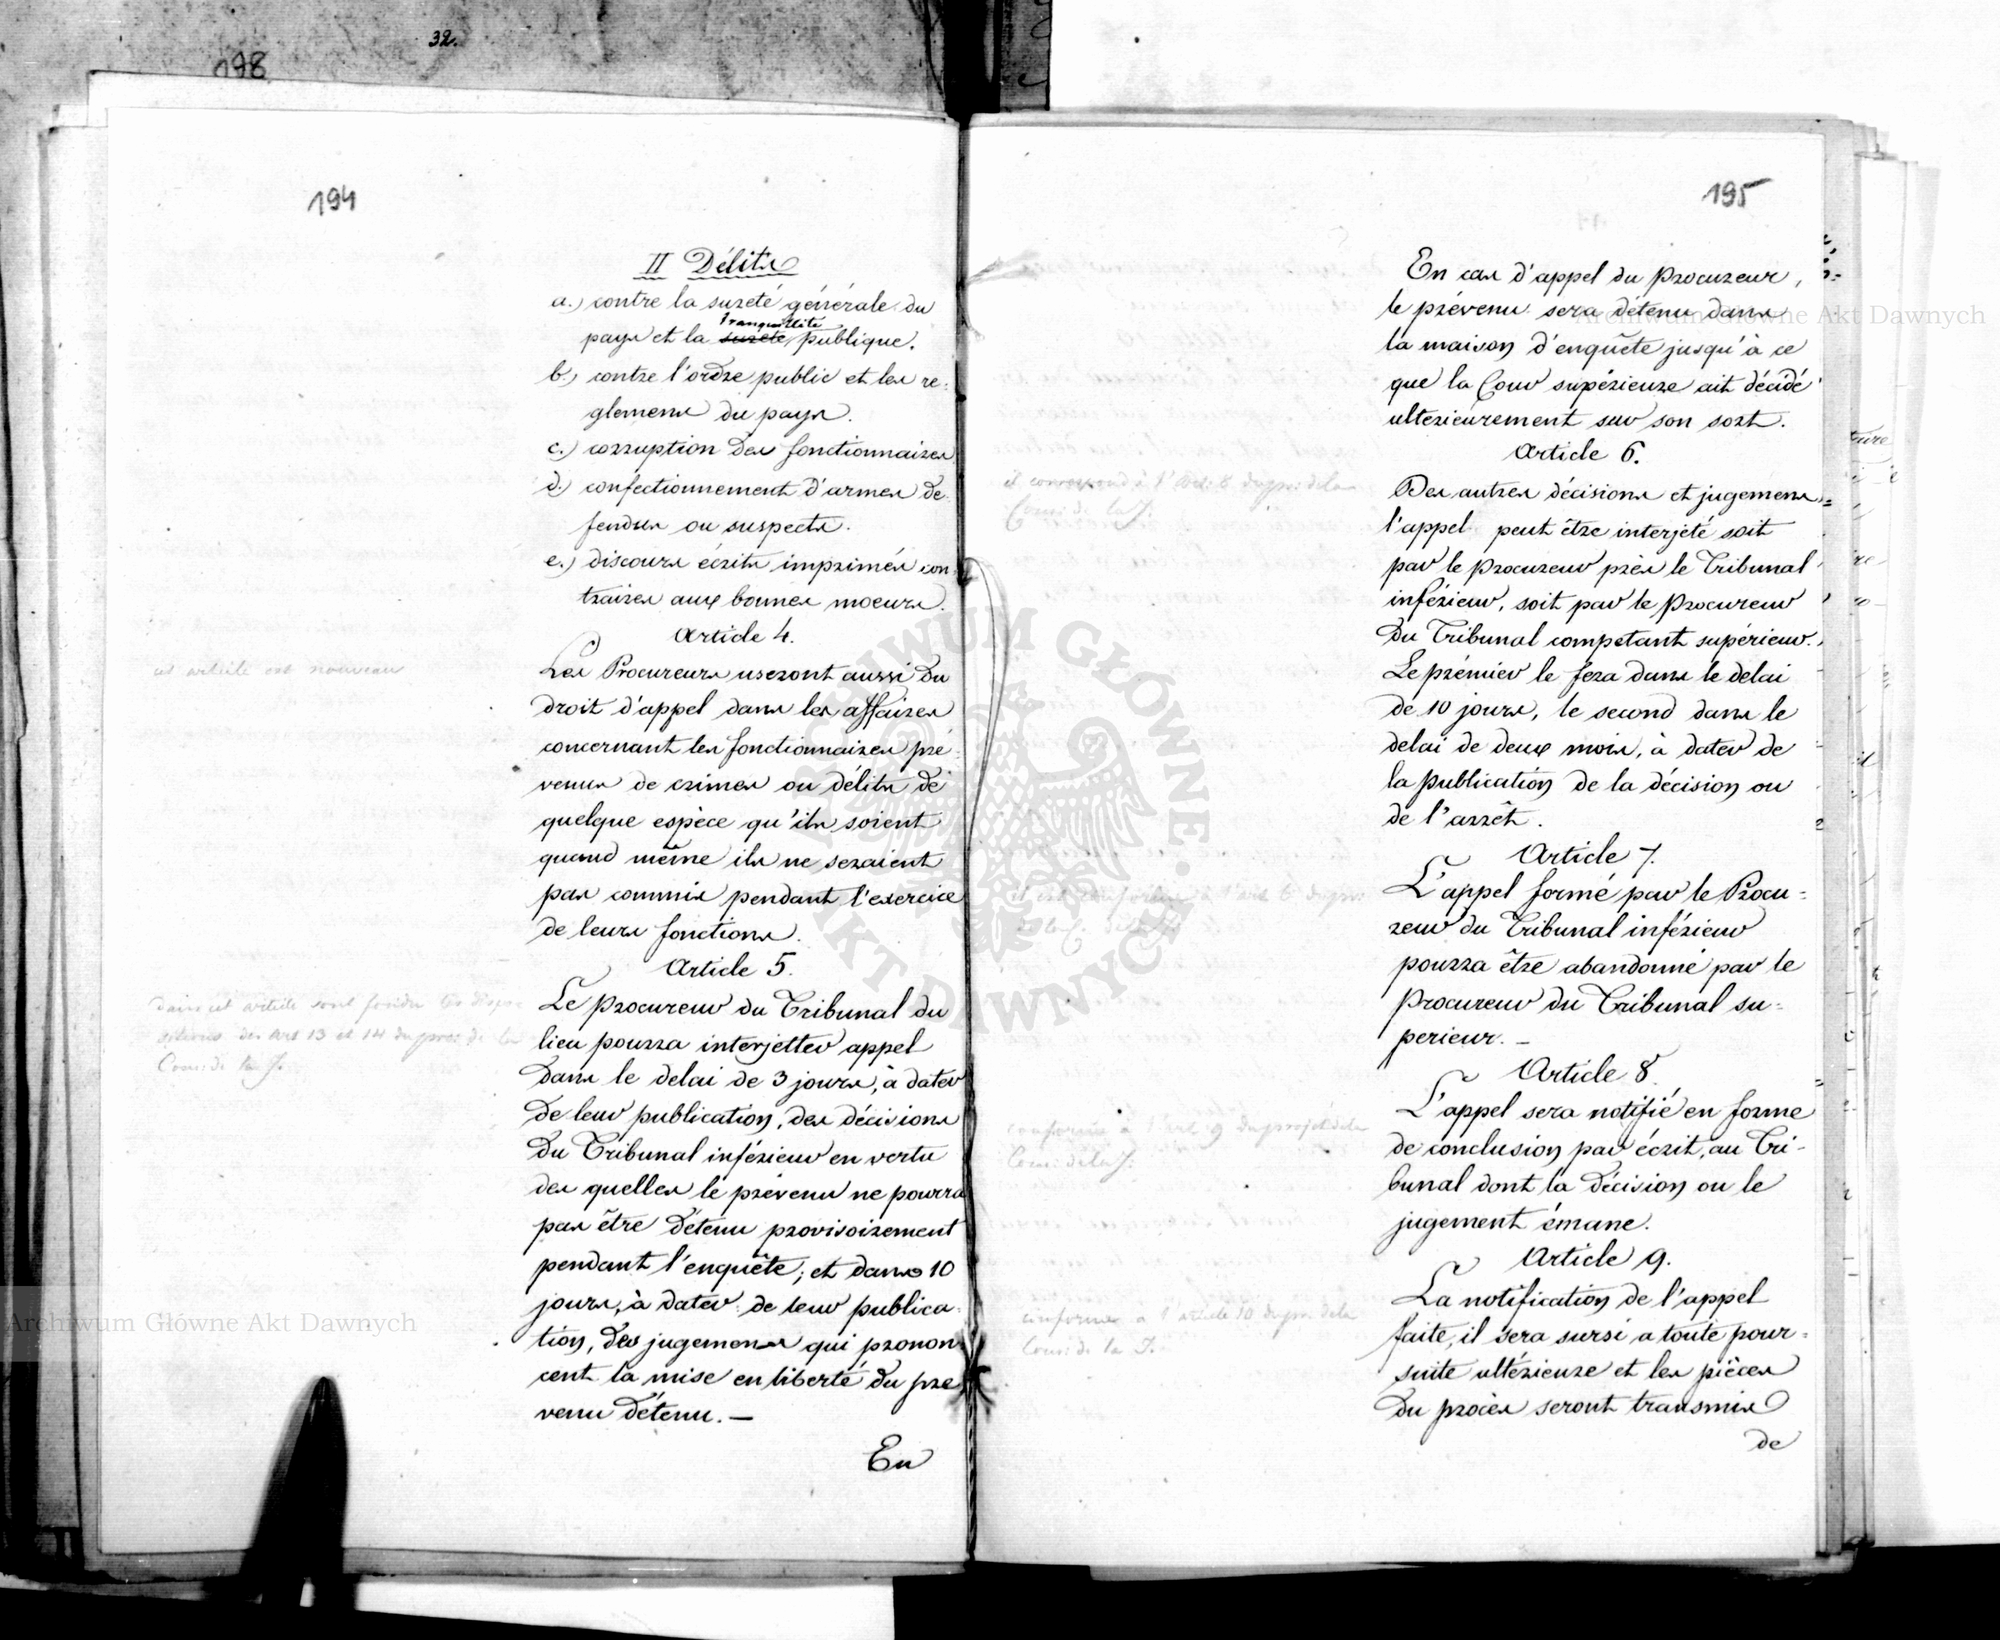 32.
198
194
II Délits
a.) contre la sureté génerale du
pays et la sureté tranquillité publique.
b.) contre l'ordre public et les re=
glemens du pays.
c.) corruption des fonctionnaires
d.) confectionnement d'armes de=
fendues ou suspects.
e.) discours écrits imprimés con=
traires aux bonnes moeurs.
Article 4.
cet article est nouveau
Les Procureurs useront aussi du
droit d'appel dans les affaires
concernant les fonctionnaires pré=
venus de crimes ou délits de
quelque espèce qu'ils soient
quand même ils ne seraient
pas commis pendant l'exercice
de leurs fonctions.
Article 5.
dans cet article sont fondu les dispo=
sitions des Art 13 et 14 du proj. de la
Com: de la J.
Le procureur du Tribunal du
lieu pourra interjetter appel
dans le delai de 3 jours, à dater
de leur publication, des décisions
du Tribunal inférieur en vertu
des quelles le prévenu ne pourra
pas être détenu provisoirement
pendant l'enquête; et dans 10
jours, à dater de leur publica=
tion, des jugemens qui pronon=
cent la mise en liberté du pré
venu détenu. —
En
195
En cas d'appel du Procureur,
le prévenu sera détenu dans
la maison d'enquête jusqu'à ce
que la Cour supérieure ait décidé
ulterieurement sur son sort.
Article 6.
il correspond à l'Art: 8 du pr: de la
Com: de la J.
Des autres décisions et jugemens
l'appel peut être interjeté soit
par le Procureur près le Tribunal
inférieur, soit par le Procureur
du Tribunal competant supérieur.
Le prémier le fera dans le délai
de 10 jours, le second dans le
delai de deux mois, à dater de
la publication de la décision ou
de l'arrêt.
Article 7.
il est conforme à l'art 6 du pr:
de la C. de la J.
L'appel formé par le Procu=
reur du Tribunal inférieur
pourra être abandonné par le
Procureur du Tribunal su=
perieur. —
Article 8.
conforme à l'art 9 du projet de la
Com: de la J.
L'appel sera notifié en forme
de conclusion par écrit, au Tri=
bunal dont la décision ou le
jugement émane.
Article 9.
conforme a l'article 10 du pr: de la
Com: de la J.
La notification de l'appel
faite, il sera sursi a toute pour=
suite ultérieure et les pièces
du procès seront transmis
de
Archiwum Główne Akt Dawnych
Archiwum Główne Akt Dawnych
ARCHIWUM GŁÓWNE AKT DAWNYCH